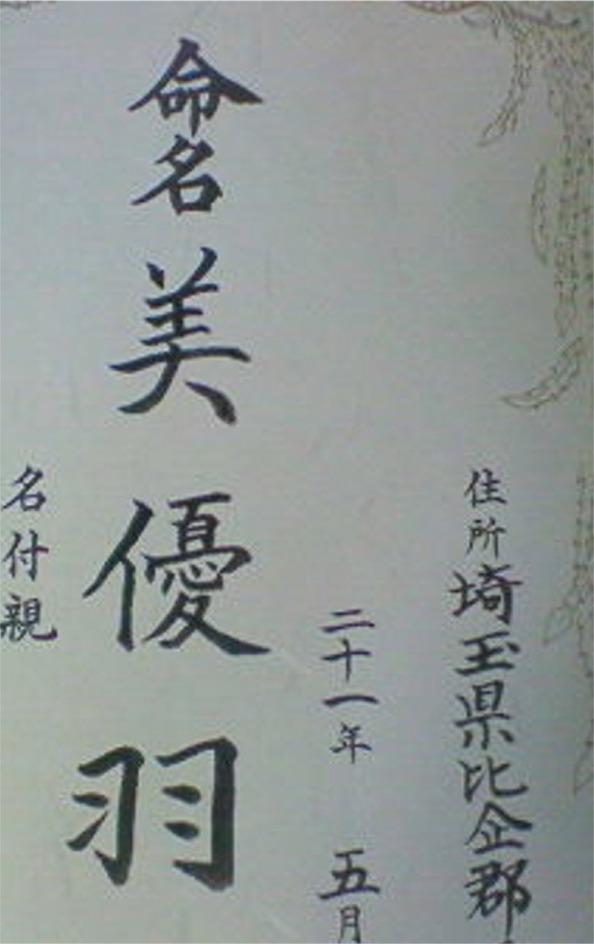 住所 埼玉県比企郡
二十一年 五月
命名 美優羽
名付親